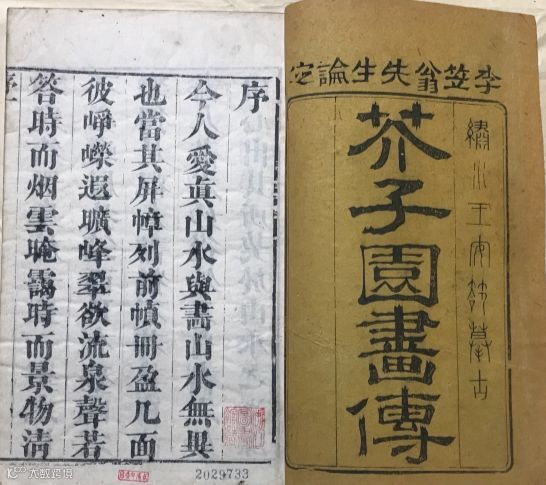 李笠翁先生論定
繡水王安節摹古
芥子園畫傳
序
今人愛眞山水與畫山水無異
也當其屏幛列前幀冊盈几面
彼崢嶸遐曠峰翠欲流泉聲若
答時而烟雲晻靄時而景物清
2029733
大数跨境